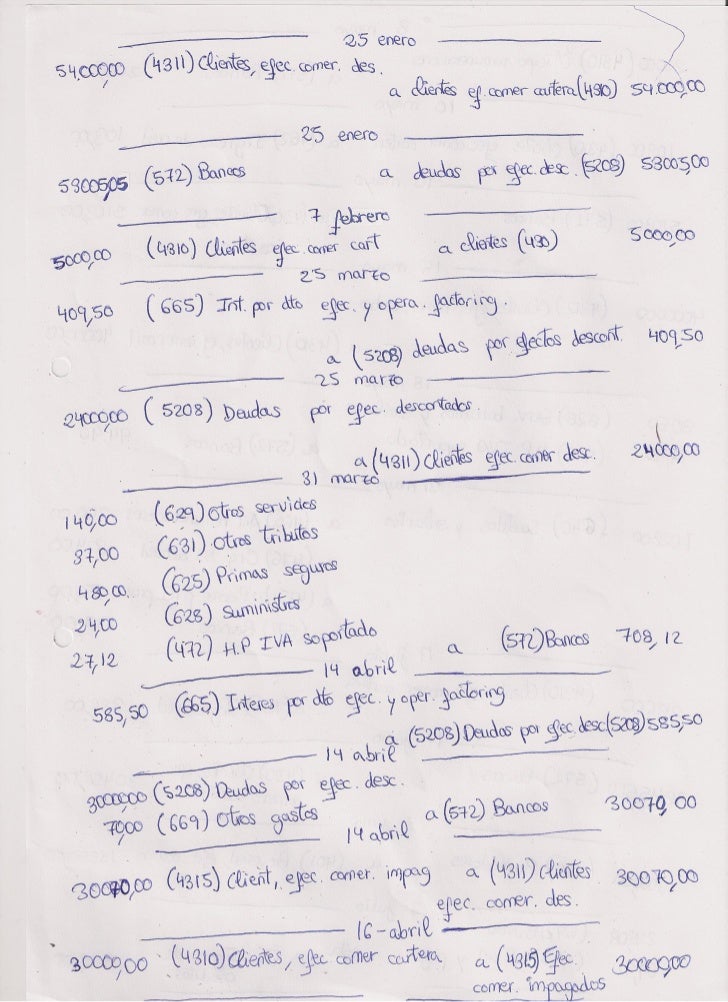 25 enero
54.000,00 (4311) Clientes, efec comer. des.
a clientes ef. comer cartera (4310) 54.000,00
25 enero
53005,05 (572) Bancos a deudas por efec. desc. (5208) 53005,00
7 febrero
5000,00 (4310) Clientes efec. comer cart a clientes (430) 5000,00
25 marzo
409,50 (665) Int. por dto efec. y opera. factoring.
a (5208) deudas por efectos descont. 409,50
25 marzo
24000,00 (5208) Deudas por efec. descontados.
a (4311) Clientes efec. comer desc. 24000,00
31 marzo
140,00 (629) Otros servicios
37,00 (631) Otros tributos
480,00 (625) Primas seguros
24,00 (628) Suministros
27,12 (472) H.P IVA soportado a (572) Bancos 708,12
14 abril
585,50 (665) Interes por dto efec. y oper. factoring
a (5208) Deudas por efec. desc (5208) 585,50
14 abril
30000,00 (5208) Deudas por efec. desc.
70,00 (669) Otros gastos a (572) Bancos 30070,00
14 abril
30070,00 (4315) Client, efec. comer. impag a (4311) Clientes 30070,00
efec. comer. des.
16-abril
30000,00 (4310) Clientes, efec comer cartera a (4315) Efec. 30000,00
comer. impagados